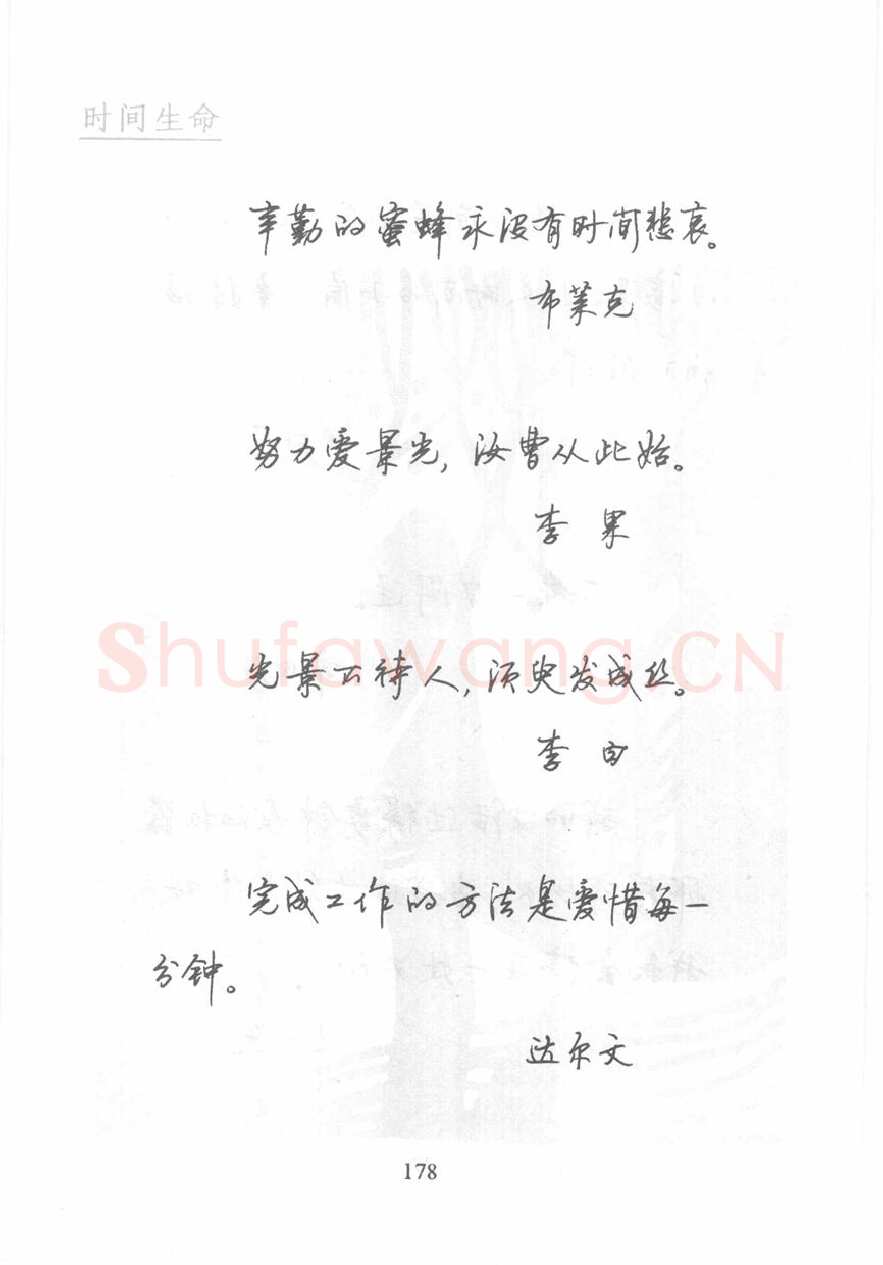 时间生命
辛勤的蜜蜂永没有时间悲哀。
布莱克
努力爱景光，汝曹从此始。
李 果
Shufawang.CN
光景不待人，须臾发成丝。
李 白
完成工作的方法是爱惜每一
分钟。
达尔文
178